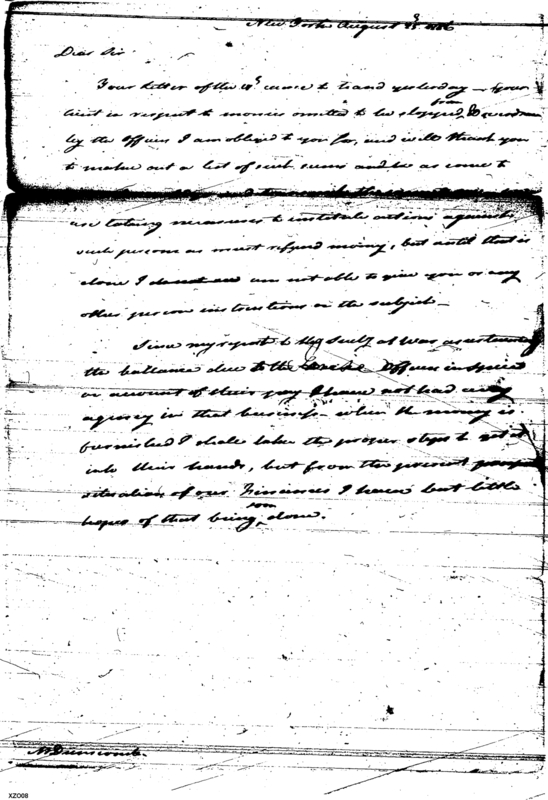 New York August 1786
Dear Sir
Your letter of the came to hand yesterday — Your
hint in respect to monies omitted to be stopped, from
by the officers I am obliged to you for, and will thank you
to make out a list of such sums and be as come to
are taking measures to institute actions against
such persons as must refund money, but until that is
done I am not able to give you or any
other person instructions on the subject —
Since my report to the Secty at War ascertaining
the ballance due to the officers in specie
on account of their pay I have not had any
agency in that business — when the money is
furnished I shall take the proper steps to get it
into their hands, but from the present
situation of our Finances I have but little
hopes of that being soon done.
Mr Dunscomb
XZO08